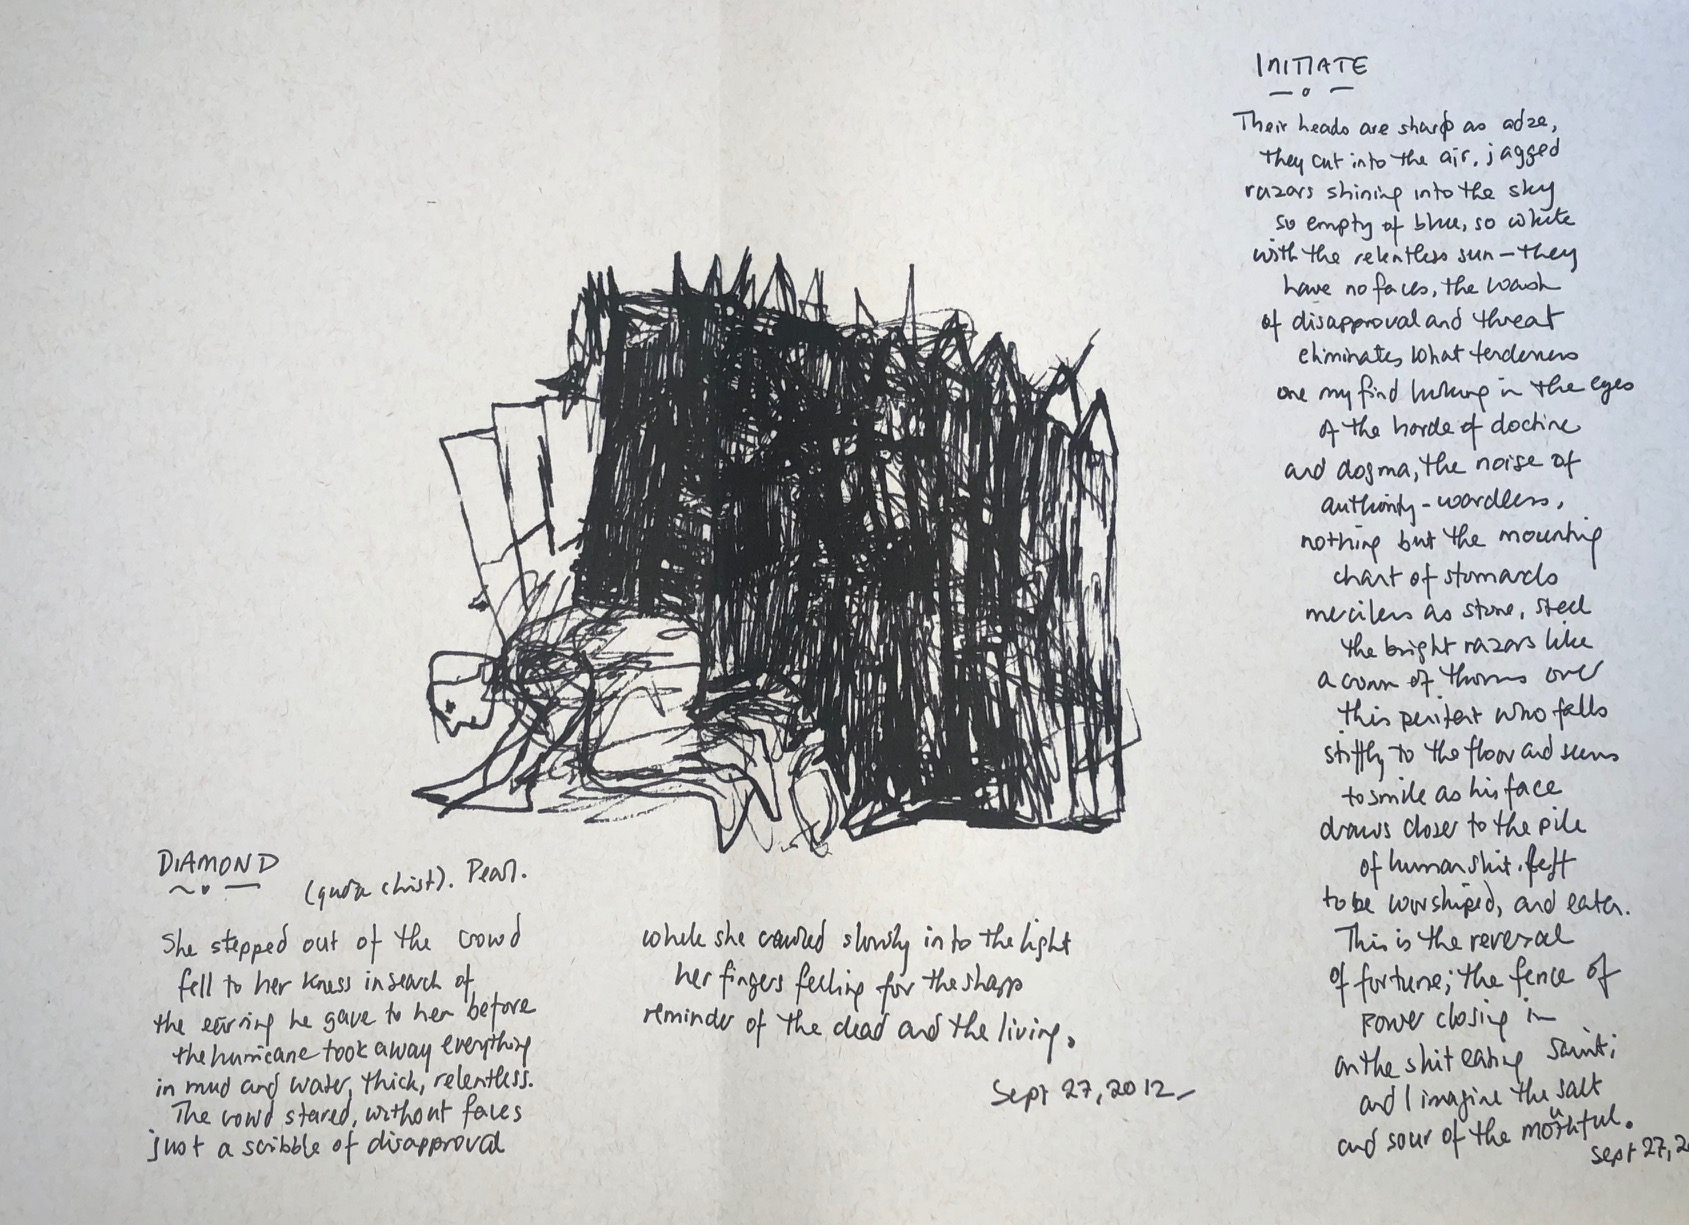 DIAMOND
(quoz christ). Pearl.
She stepped out of the crowd
fell to her kness in search of
the earring he gave to her before
the hurricane took away everything
in mud and water, thick, relentless.
The crowd stared, without faces
just a scribble of disapproval
while she crawled slowly into the light
her fingers feeling for the sharp
reminder of the dead and the living.
Sept 27, 2012
INITIATE
Their heads are sharp as adze,
they cut into the air, jagged
razors shining into the sky
so empty of blue, so white
with the relentless sun – they
have no faces, the wash
of disapproval and threat
eliminates what tenderness
one my find lurking in the eyes
of the horde of doctrine
and dogma, the noise of
authority – wordless,
nothing but the mounting
chant of
merciless as stone, steel
the bright razors like
a crown of thorns over
this penitent who falls
stiffly to the floor and seems
to smile as his face
draws closer to the pile
of human shit, left
to be worshiped, and eaten.
This is the reversal
of fortune; the fence of
power closing in
on the shit eating saint;
and I imagine the salt
and sour of the mouthful.
Sept 27, 2